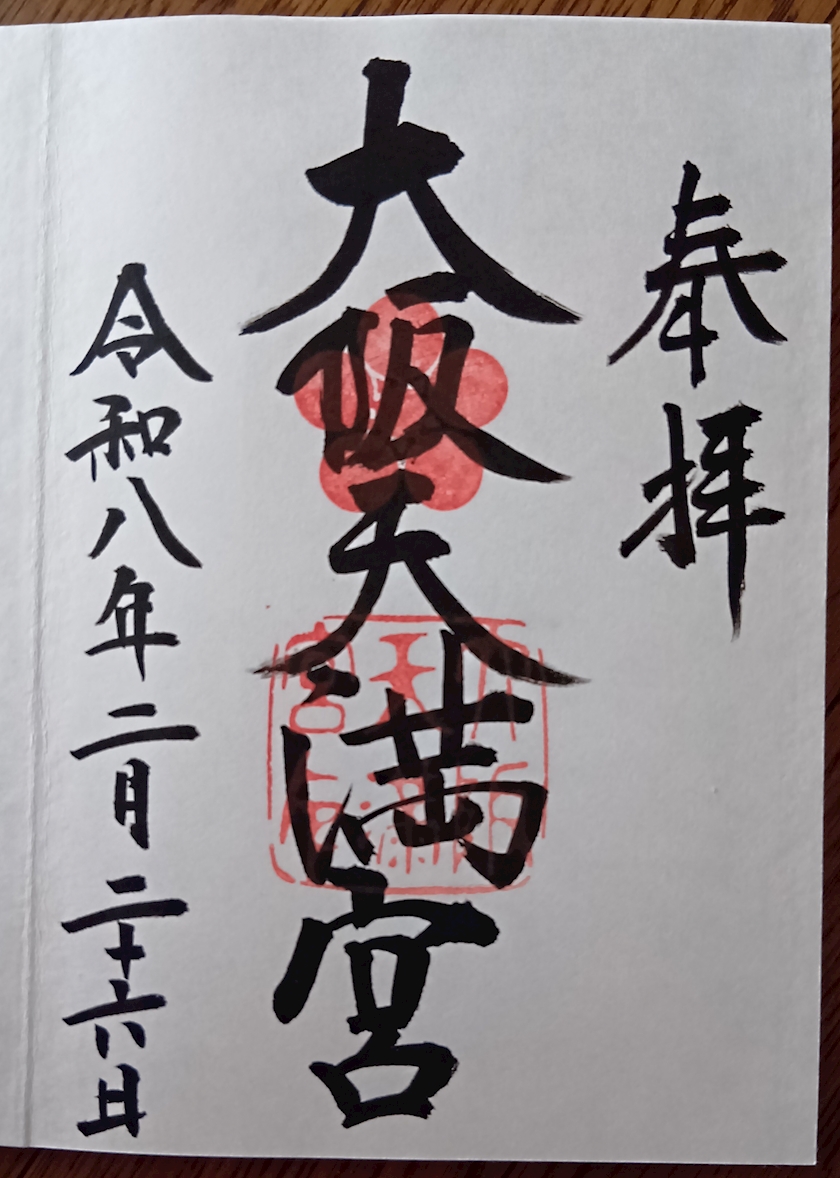 奉拝
大阪天満宮
令和八年二月二十六日